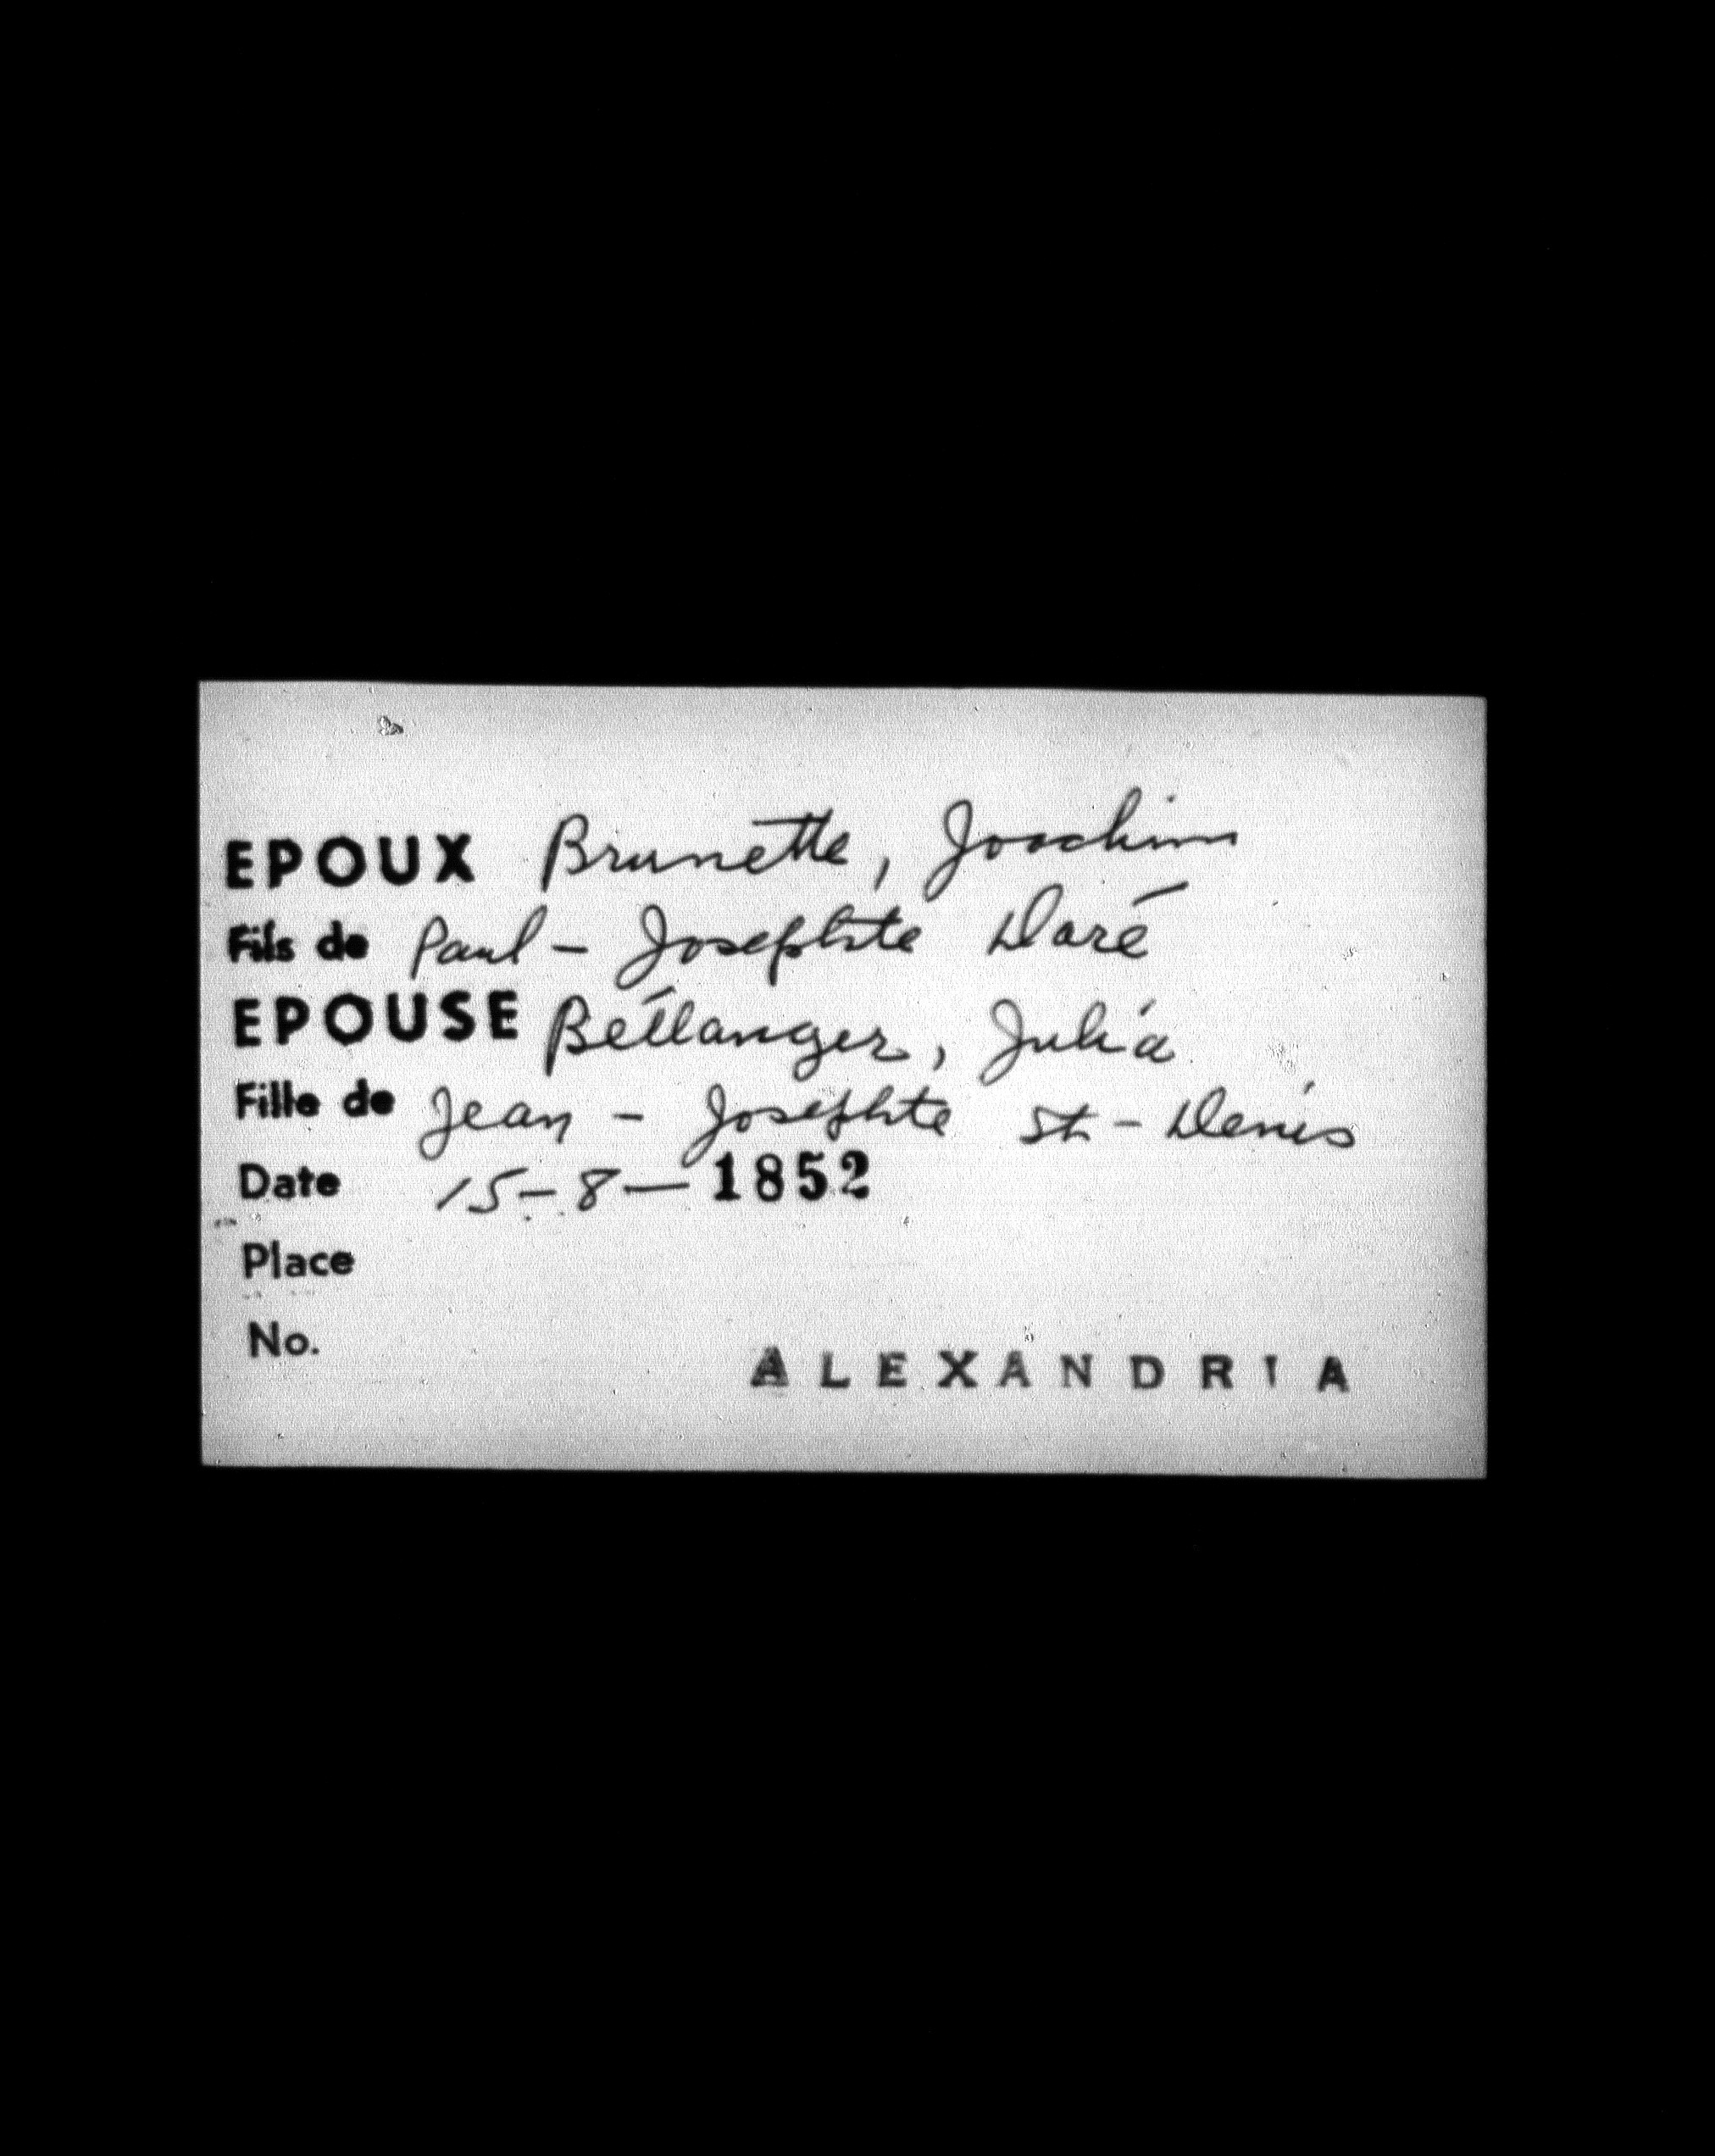 EPOUX Brunette, Joachim
Fils de Paul - Josephte Daré
EPOUSE Béllanger, Julia
Fille de Jean - Josephte St-Denis
Date 15-8-1852
Place
No.
ALEXANDRIA